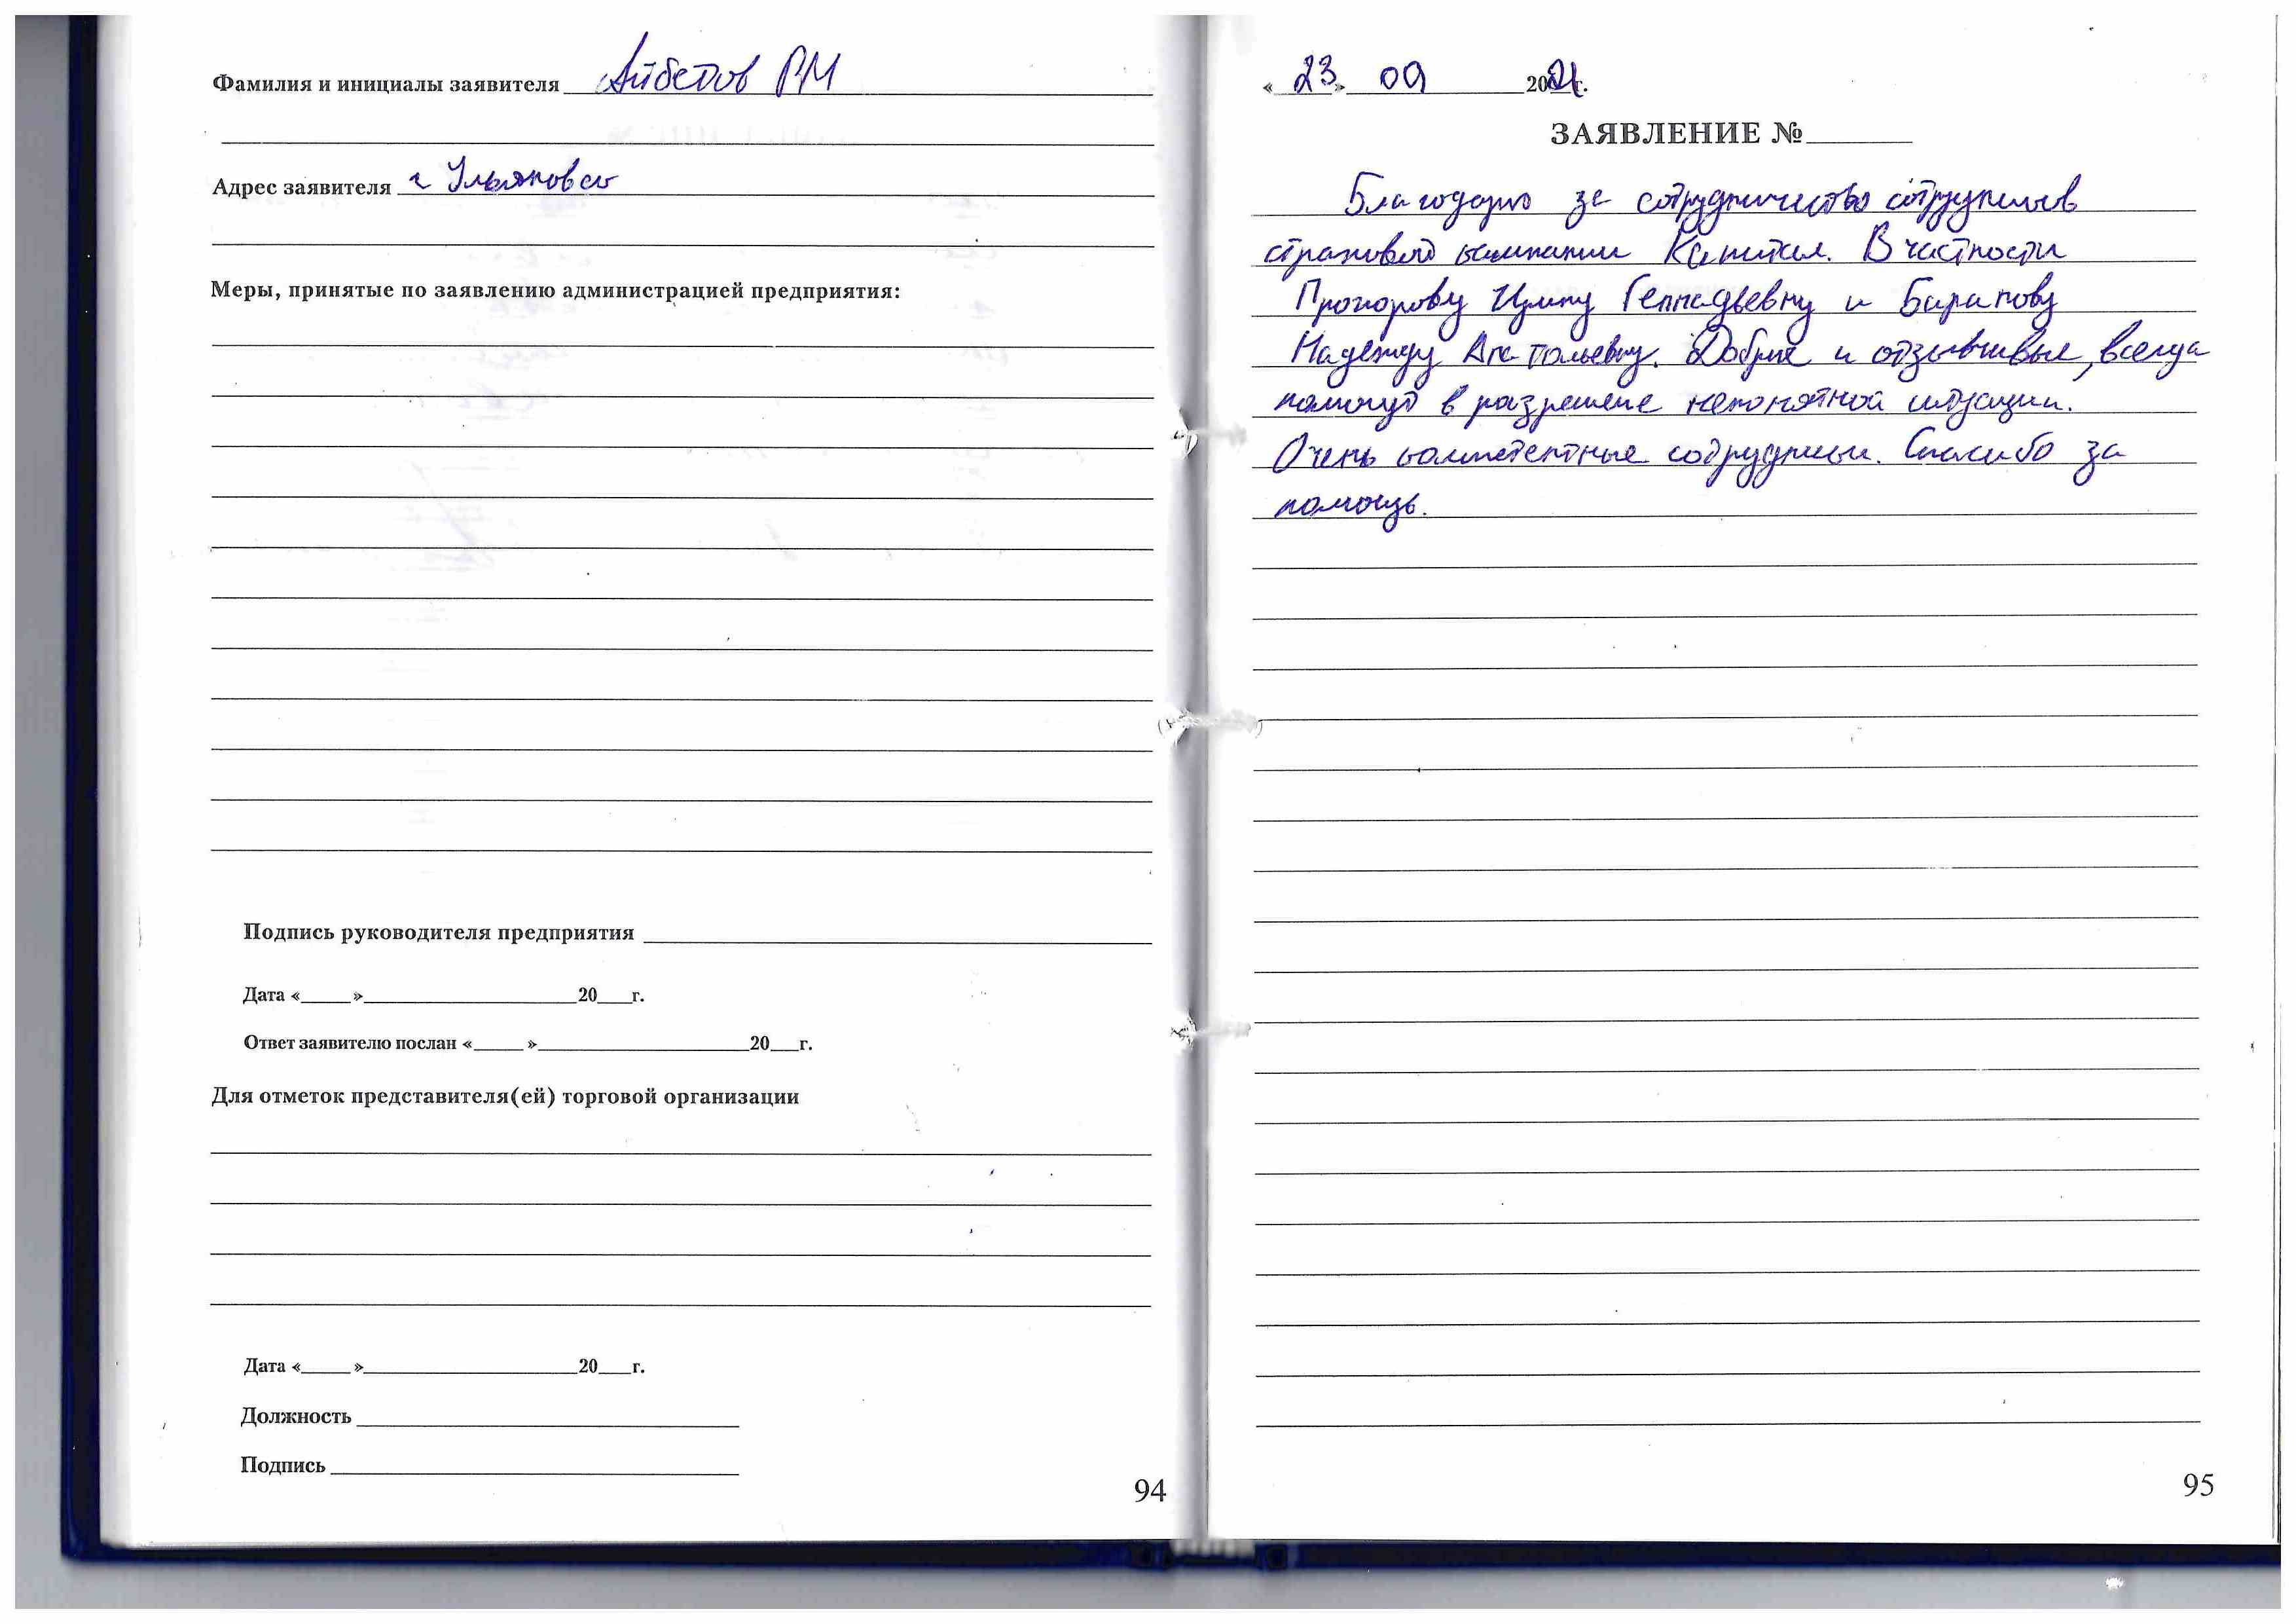 Фамилия и инициалы заявителя Айбетов РМ
Адрес заявителя г Ульяновск
Меры, принятые по заявлению администрацией предприятия:
Подпись руководителя предприятия
Дата «____»____20___г.
Ответ заявителю послан «____»____20___г.
Для отметок представителя(ей) торговой организации
Дата «____»____20___г.
Должность
Подпись
94
«23» 09 2021г.
ЗАЯВЛЕНИЕ №
Благодарю за сотрудничество сотрудников
страховой компании Капитал. В частности
Прохорову Ирину Геннадьевну и Баранову
Надежду Анатольевну. Добрые и отзывчивые, всегда
помогут в разрешене непонятной ситуации.
Очень компетентные сотрудники. Спасибо за
помощь.
95